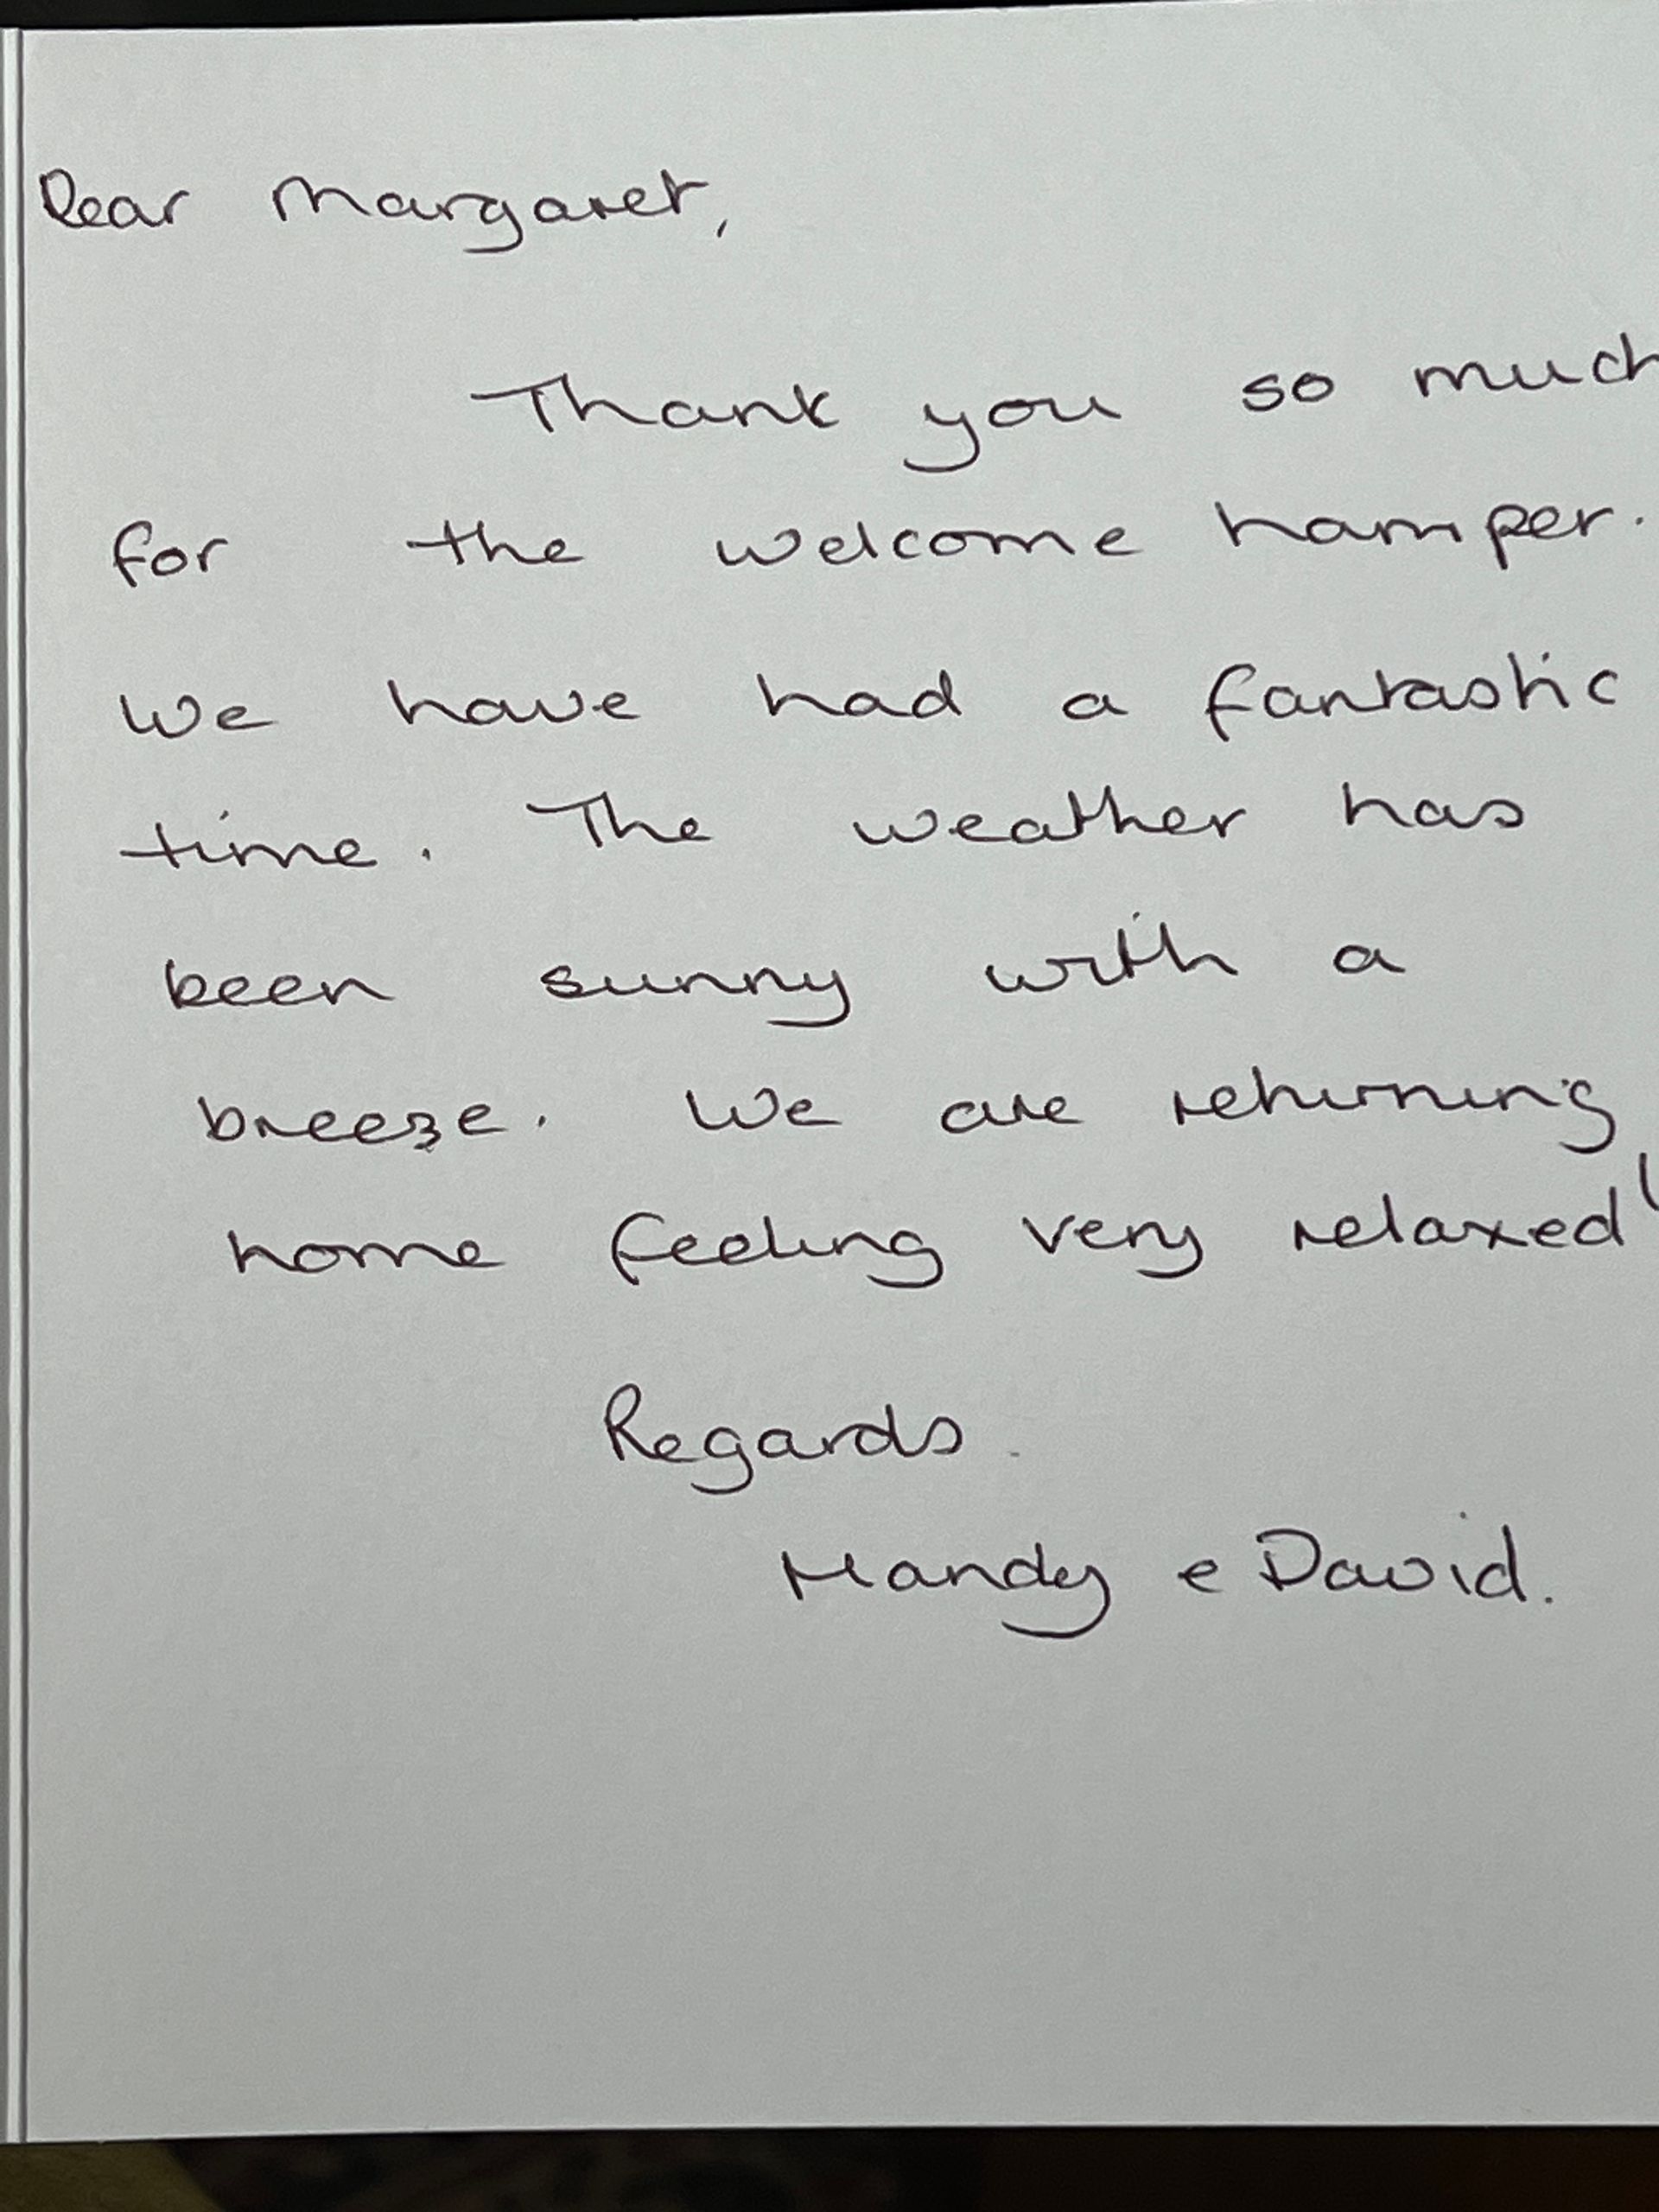 Dear Margaret,
Thank you so much
for the welcome hamper.
We have had a fantastic
time. The weather has
been sunny with a
breeze. We are returning
home feeling very relaxed!
Regards.
Mandy e David.